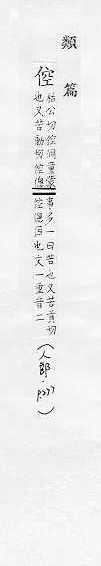 類篇
倥
枯公切倥侗童蒙
也又苦動切倥傯
事多一曰苦也又苦貢切
倥傯困也文一重音二
(人部.p277)